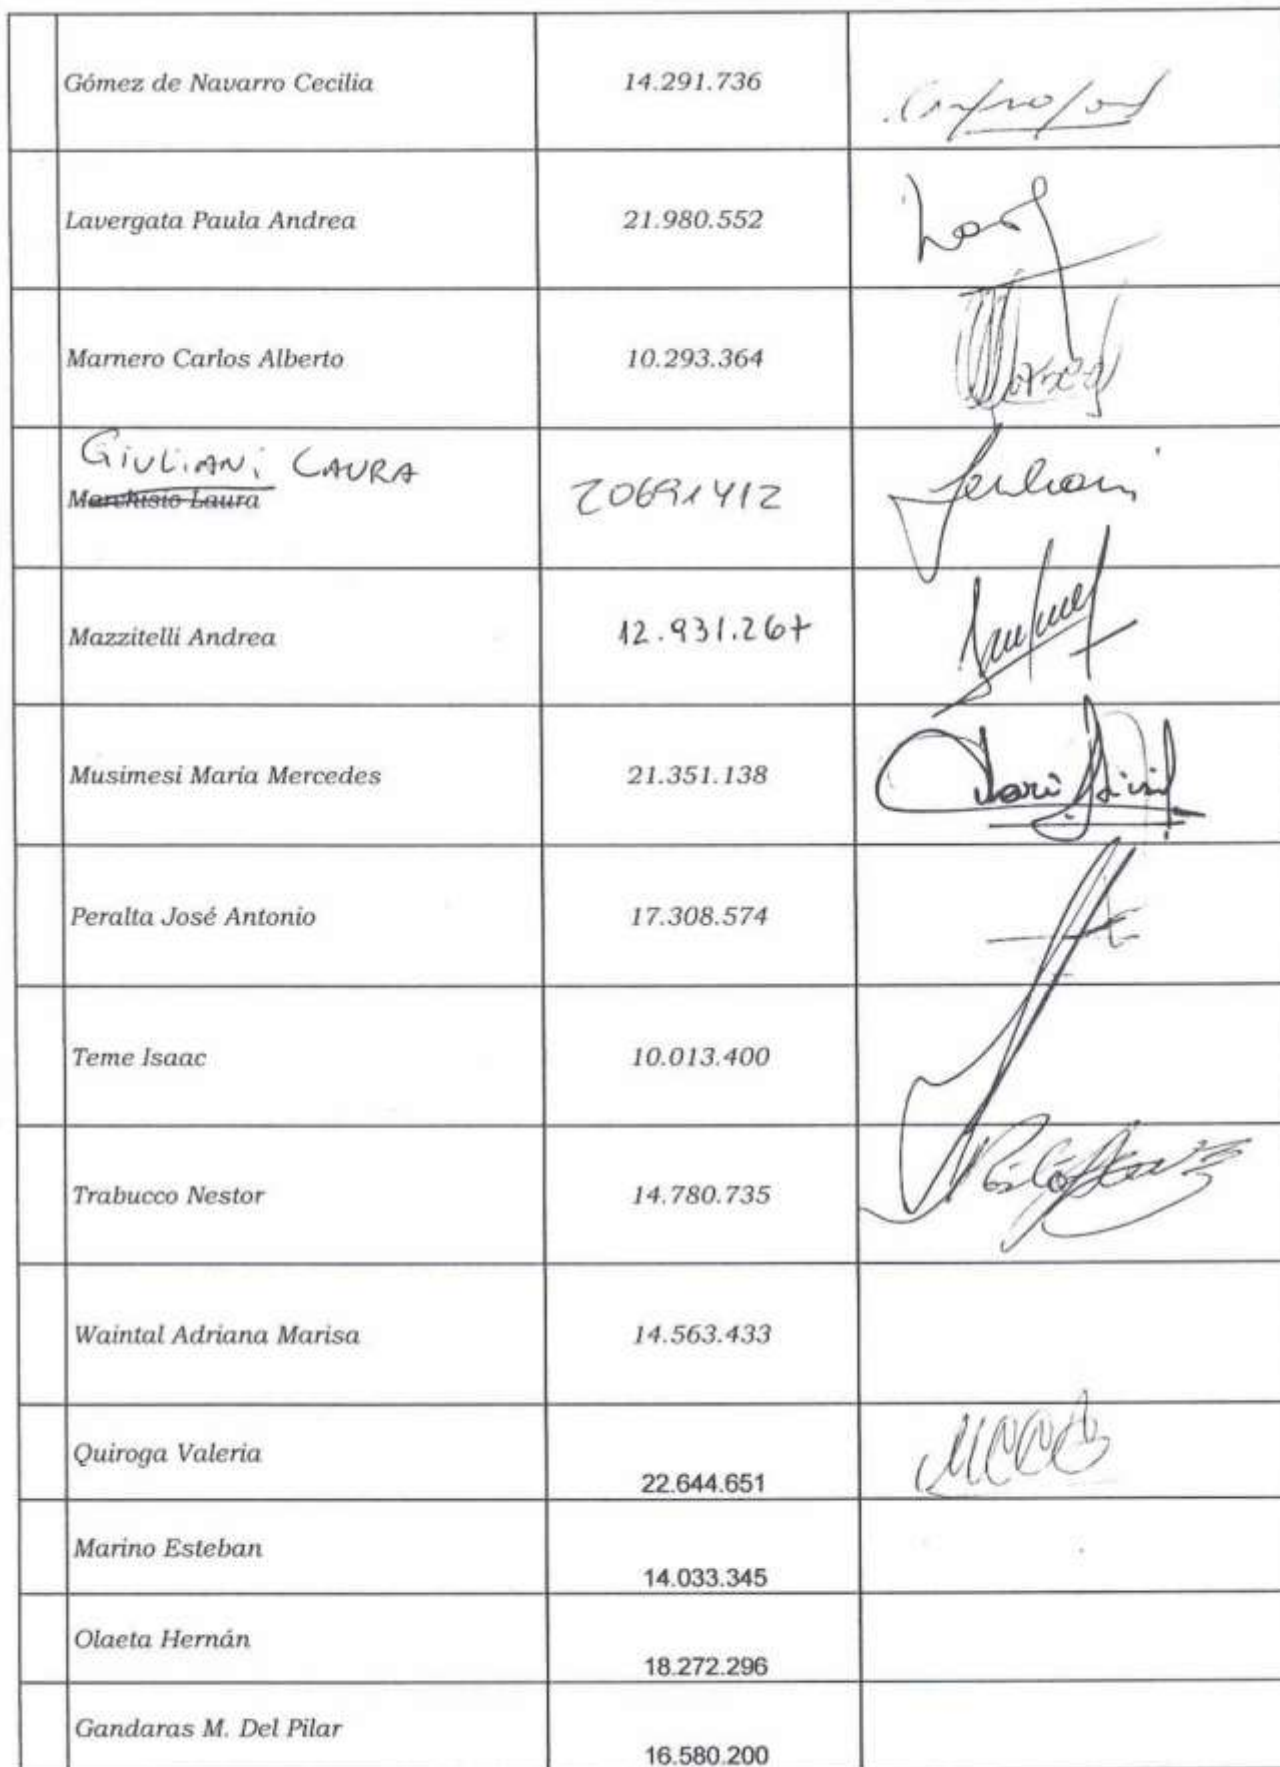 Gómez de Navarro Cecilia 14.291.736
Lavergata Paula Andrea 21.980.552
Marnero Carlos Alberto 10.293.364
GIULIANI LAURA
Marchisio Laura 20691412
Mazzitelli Andrea 12.931.267
Musimesi María Mercedes 21.351.138
Peralta José Antonio 17.308.574
Teme Isaac 10.013.400
Trabucco Nestor 14.780.735
Waintal Adriana Marisa 14.563.433
Quiroga Valeria 22.644.651
Marino Esteban 14.033.345
Olaeta Hernán 18.272.296
Gandaras M. Del Pilar 16.580.200